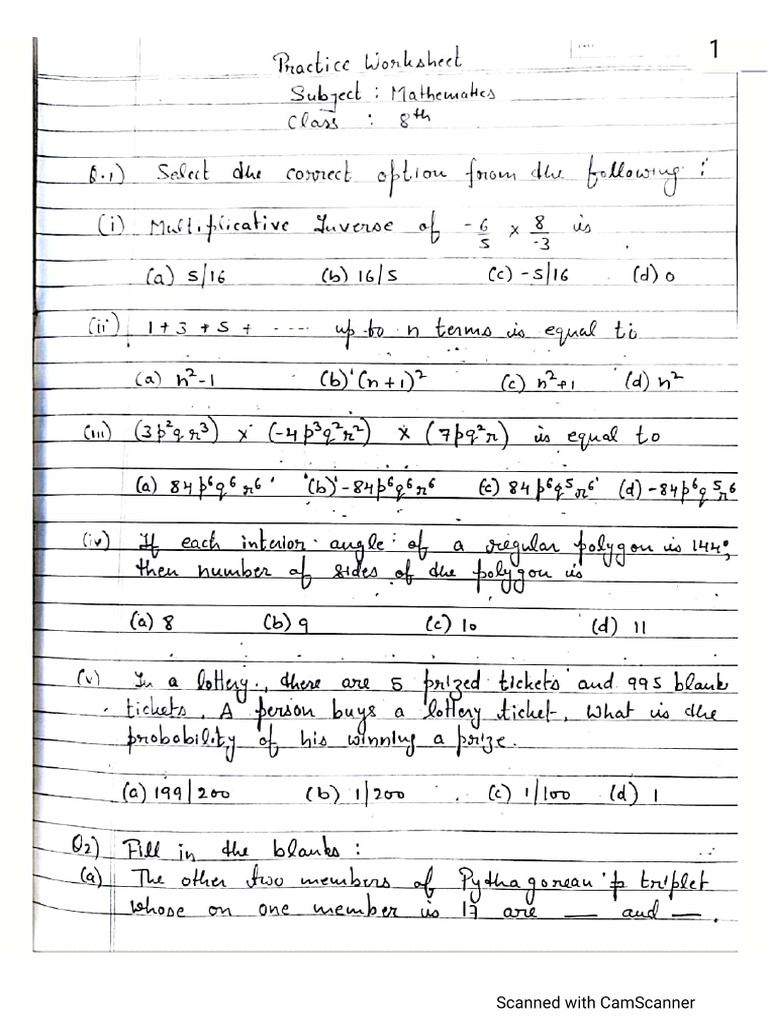 1
Practice Worksheet
Subject : Mathematics
Class : 8th
Q.1) Select the correct option from the following :
(i) Multiplicative Inverse of -6/5 × 8/-3 is
(a) 5/16 (b) 16/5 (c) -5/16 (d) 0
(ii) 1+3+5+ ---- up to n terms is equal to
(a) n²-1 (b) (n+1)² (c) n²+1 (d) n²
(iii) (3p²qr³) × (-4p³q²r²) × (7pq²r) is equal to
(a) 84p⁶q⁶r⁶ (b) -84p⁶q⁶r⁶ (c) 84p⁶q⁵r⁶ (d) -84p⁶q⁵r⁶
(iv) If each interior angle of a regular polygon is 144°,
then number of sides of the polygon is
(a) 8 (b) 9 (c) 10 (d) 11
(v) In a lottery, there are 5 prized tickets and 995 blank
tickets. A person buys a lottery ticket. What is the
probability of his winning a prize.
(a) 199/200 (b) 1/200 (c) 1/100 (d) 1
Q2) Fill in the blanks :
(a) The other two members of Pythagorean p triplet
whose on one member is 17 are __ and __.
Scanned with CamScanner